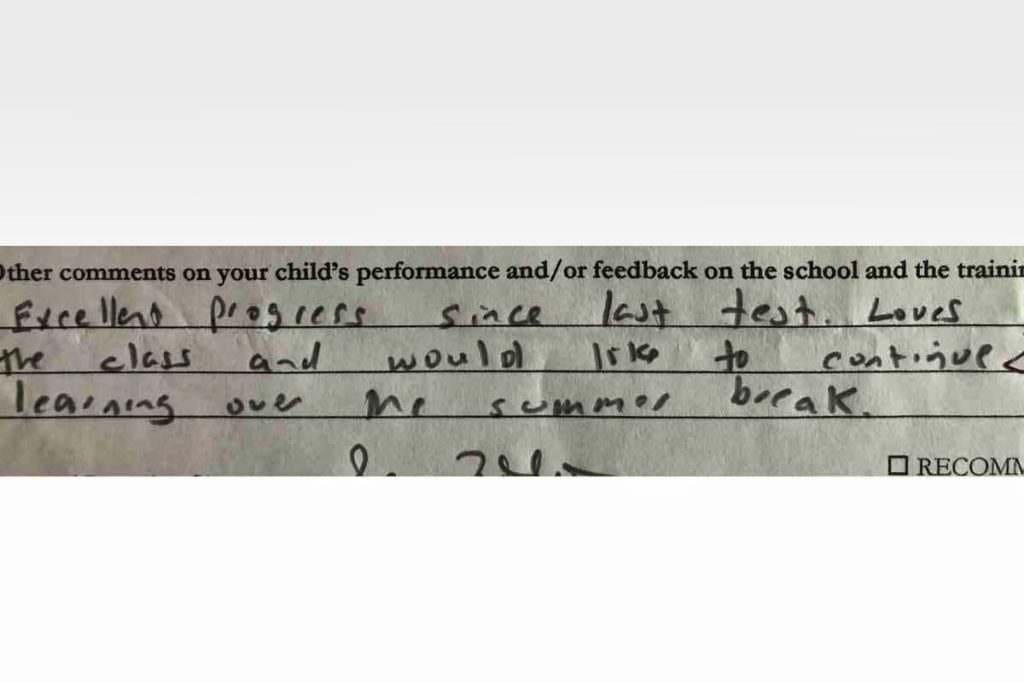 Other comments on your child's performance and/or feedback on the school and the trainin
Excellent progress since last test. Loves
the class and would like to continue
learning over the summer break.
RECOMM